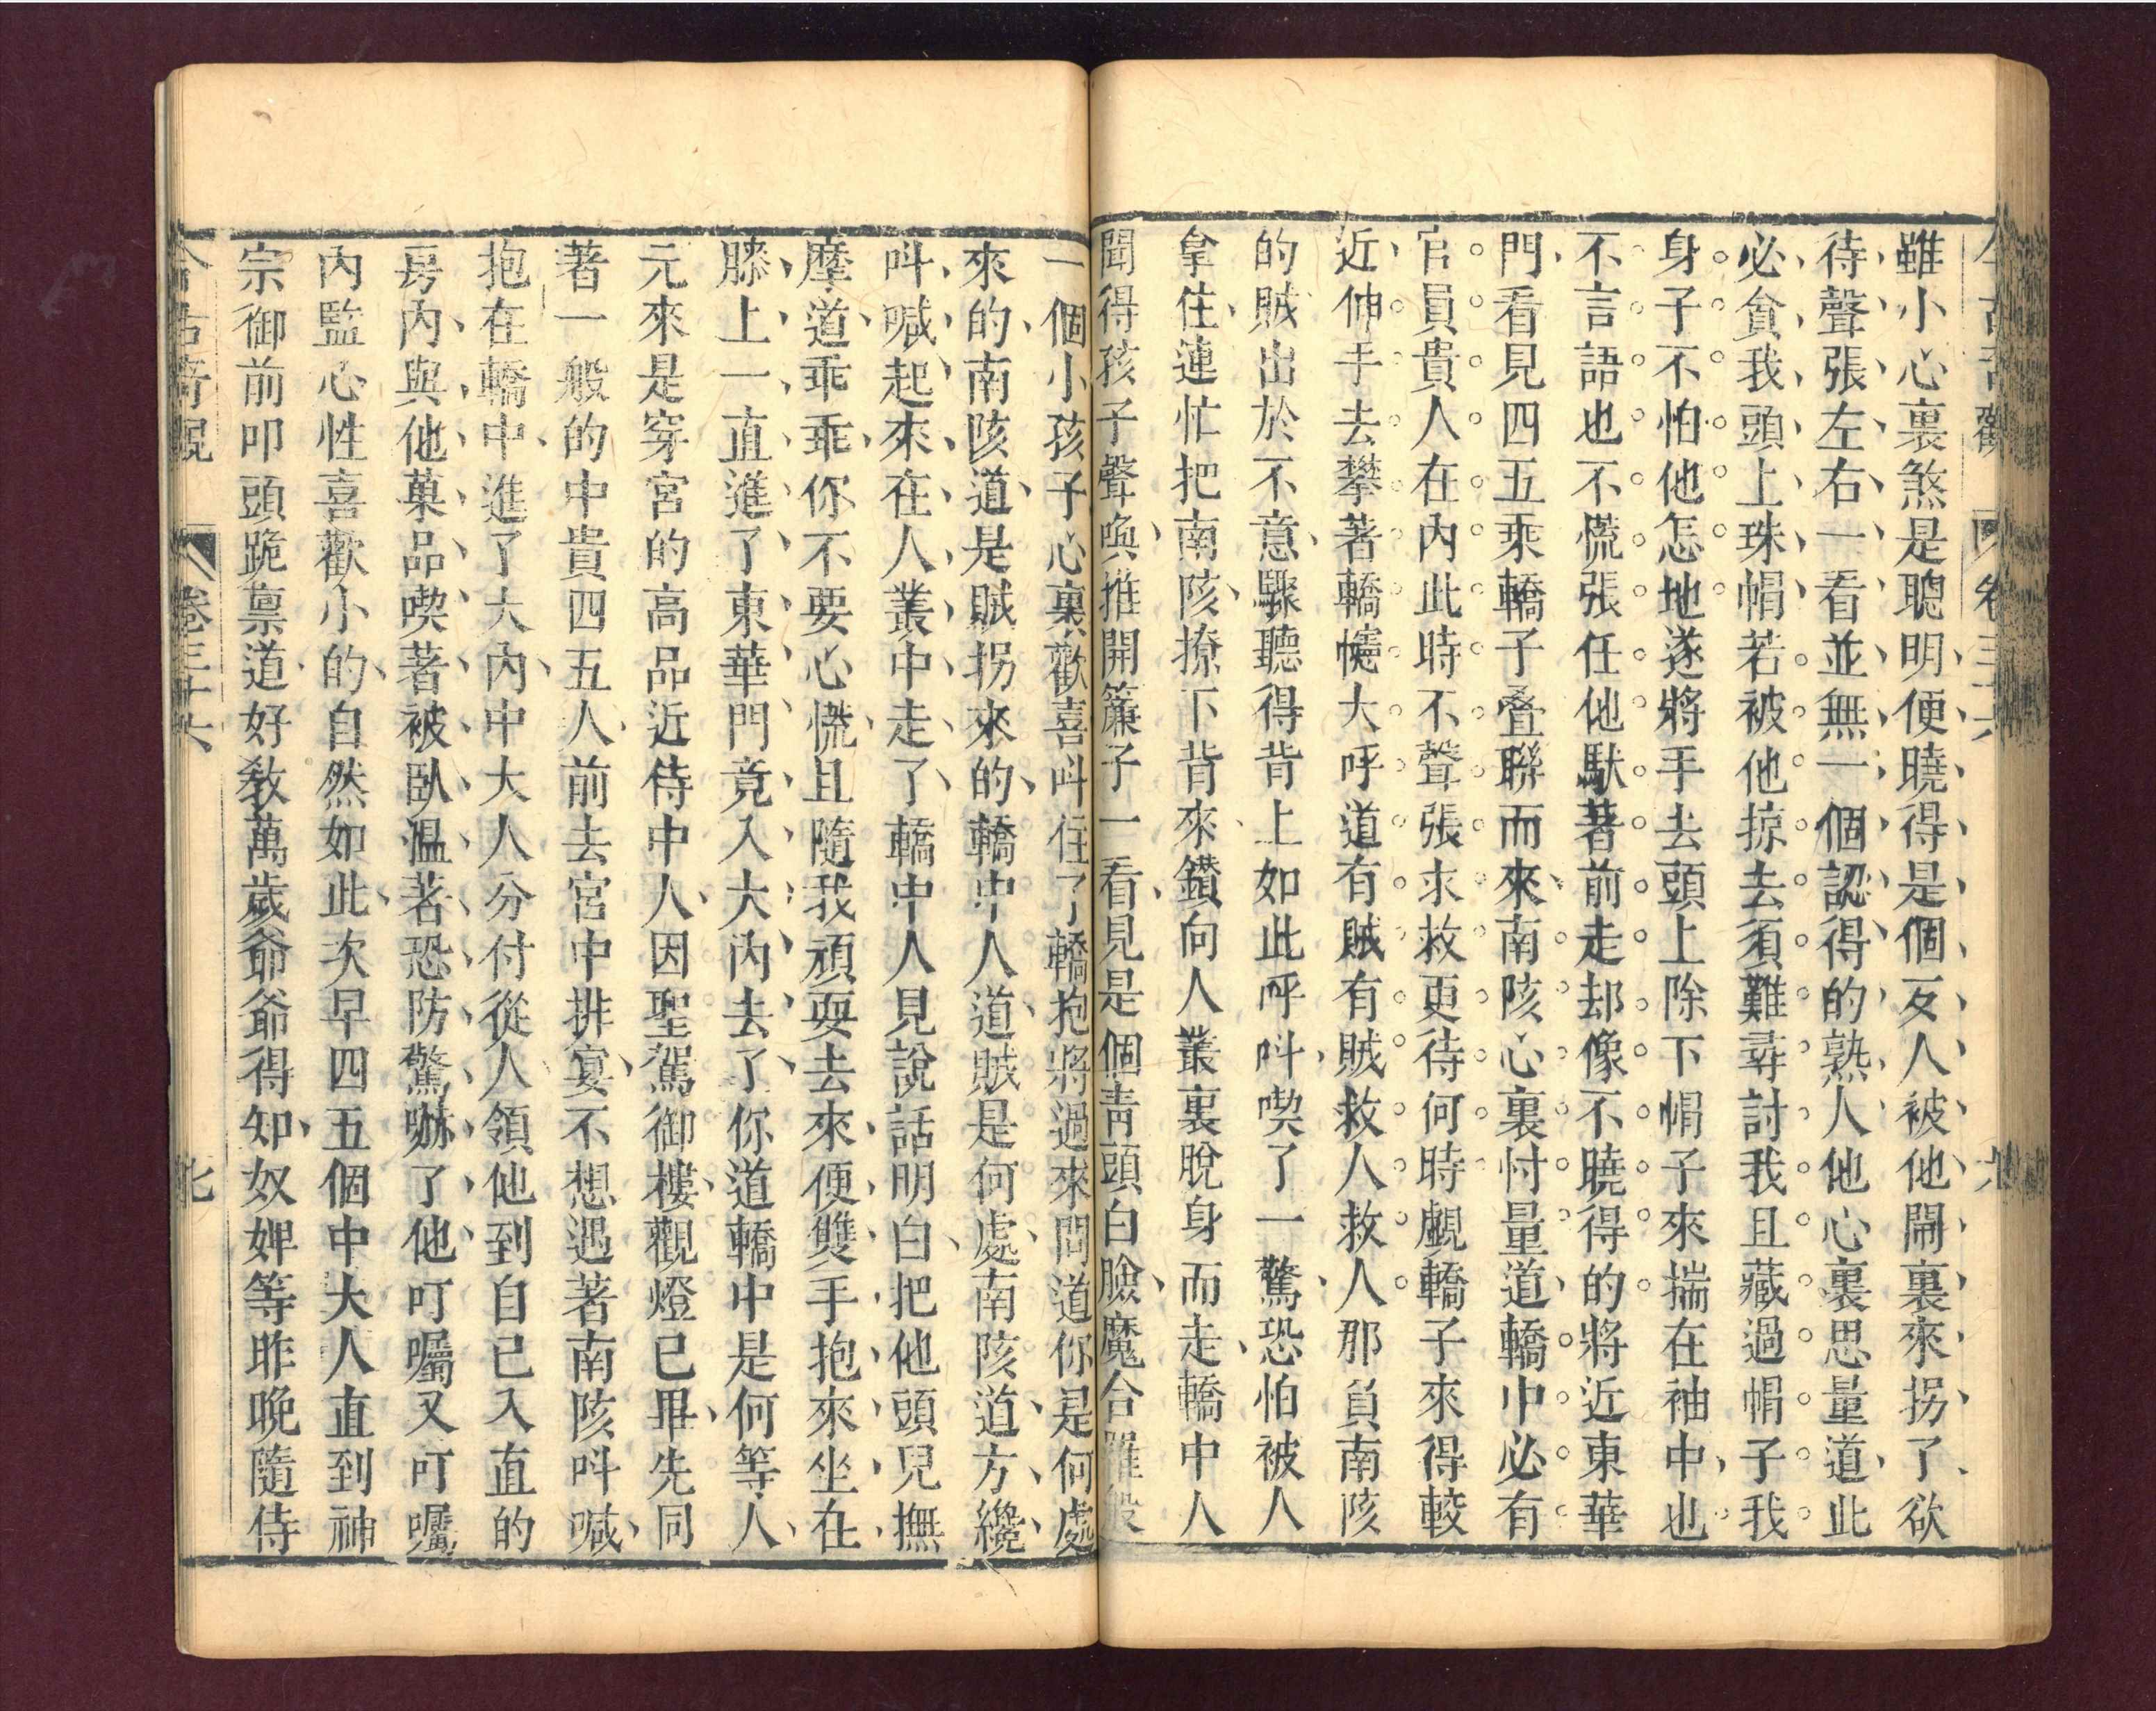 今古奇觀 卷三十六
雖小心裏煞是聰明便曉得是個歹人被他鬧裏來拐了欲
待聲張左右一看並無一個認得的熟人他心裏思量道此
必貪我頭上珠帽若被他掠去須難尋討我且藏過帽子我
身子不怕他怎地遂將手去頭上除下帽子來揣在袖中也
不言語也不慌張任他馱著前走却像不曉得的將近東華
門看見四五乘轎子疊聯而來南陔心裏忖量道轎中必有
官員貴人在內此時不聲張求救更待何時覷轎子來得較
近伸手去攀著轎幰大呼道有賊有賊救人救人那負南陔
的賊出於不意驟聽得背上如此呼呌喫了一驚恐怕被人
拿住連忙把南陔撩下背來鑽向人叢裏脫身而走轎中人
聞得孩子聲喚推開簾子一看見是個青頭白臉魔合羅般
一個小孩子心裏歡喜呌住了轎抱將過來問道你是何處
來的南陔道是賊拐來的轎中人道賊是何處南陔道方纔
呌喊起來在人叢中走了轎中人見說話明白把他頭兒撫
摩道乖乖你不要心慌且隨我頑耍去來便雙手抱來坐在
膝上一直進了東華門竟入大內去了你道轎中是何等人
元來是穿宮的高品近侍中人因聖駕御樓觀燈已畢先同
著一般的中貴四五人前去宮中排宴不想遇著南陔呌喊
抱在轎中進了大內中大人分付從人領他到自己入直的
房內與他菓品喫著被臥溫著恐防驚嚇了他叮囑又叮囑
內監心性喜歡小的自然如此次早四五個中大人直到神
宗御前叩頭跪稟道好教萬歲爺爺得知奴婢等昨晚隨侍
今古奇觀 卷三十六